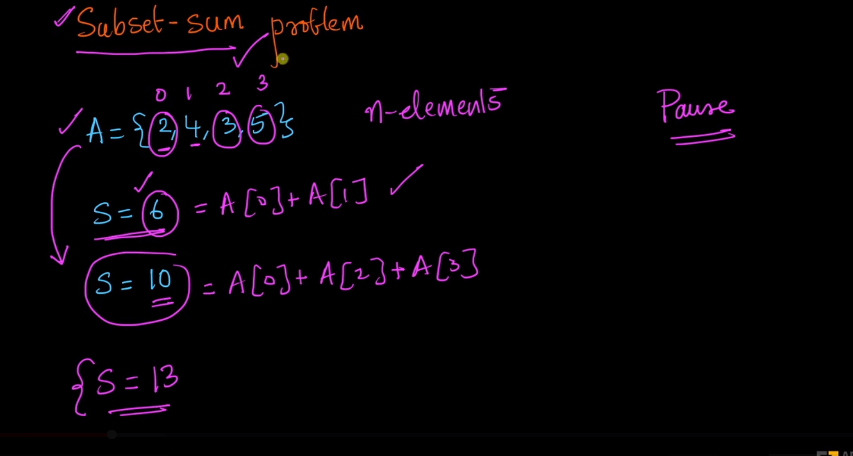 Subset-sum problem
0 1 2 3
A = {2, 4, 3, 5} n-elements Pause
S = 6 = A[0] + A[1]
S = 10 = A[0] + A[2] + A[3]
{S = 13